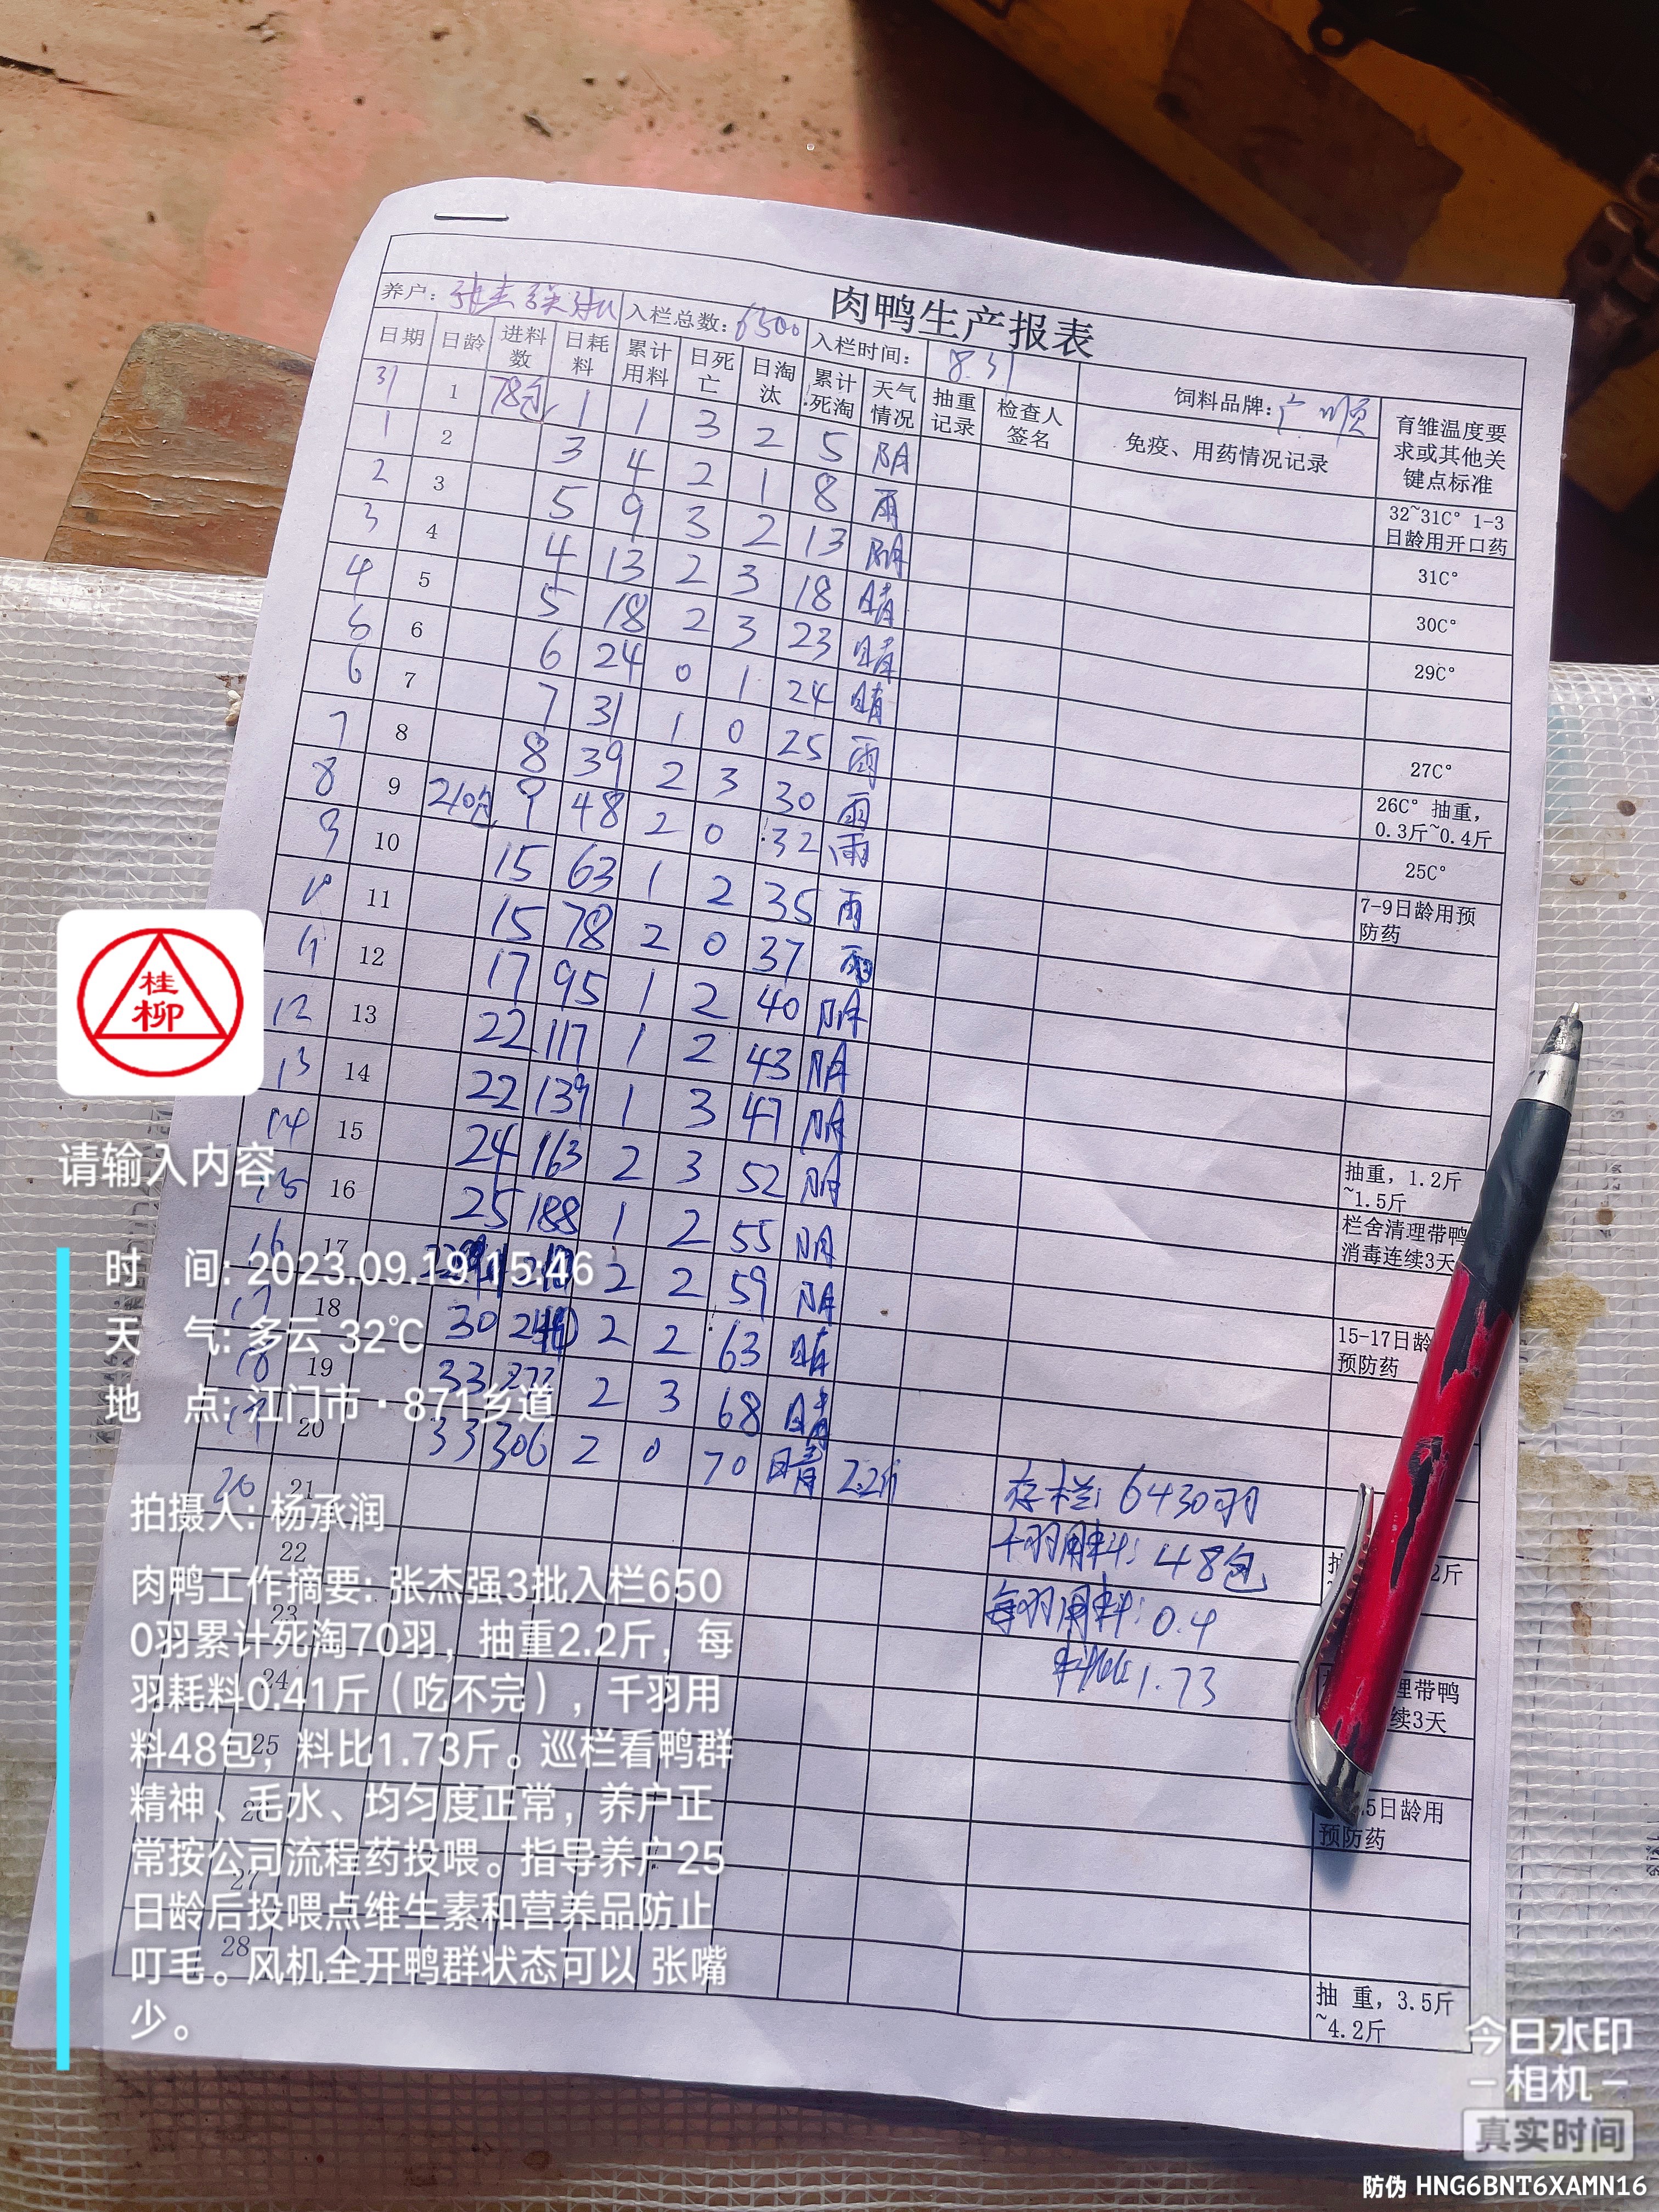 肉鸭生产报表
养户: 张杰强 入栏总数: 6500 入栏时间: 8.31 饲料品牌: 广顺
日期 日龄 进料数 日耗料 累计用料 日死亡 日淘汰 累计死淘 天气情况 抽重记录 检查人签名 免疫、用药情况记录 育雏温度要求或其他关键点标准
31 1 78包 1 1 3 2 5 阴
1 2 3 4 2 1 8 雨 32~31C° 1-3日龄用开口药
2 3 5 9 3 2 13 阴 31C°
3 4 4 13 2 3 18 晴 30C°
4 5 5 18 2 3 23 晴 29C°
5 6 6 24 0 1 24 晴
6 7 7 31 1 0 25 雨 27C°
7 8 8 39 2 3 30 雨 26C° 抽重,0.3斤~0.4斤
8 9 210包 9 48 2 0 32 雨 25C°
9 10 15 63 1 2 35 雨 7-9日龄用预防药
10 11 15 78 2 0 37 雨
11 12 17 95 1 2 40 阴
12 13 22 117 1 2 43 阴
13 14 22 139 1 3 47 阴
14 15 24 163 2 3 52 阴 抽重, 1.2斤~1.5斤
15 16 25 188 1 2 55 阴 栏舍清理带鸭消毒连续3天
16 17 2 2 59 阴
17 18 30 2 2 63 晴 15-17日龄 预防药
18 19 33 2 3 68 晴
19 20 33 306 2 0 70 晴 2.2斤
20 21 存栏: 6430羽
22 千羽用料: 48包
23 每羽用料: 0.4
24 料比1.73
理带鸭
续3天
25
26 5日龄用
预防药
27
28
抽 重, 3.5斤
~4.2斤
桂
柳
请输入内容
时 间: 2023.09.19 15:46
天 气: 多云 32℃
地 点: 江门市·871乡道
拍摄人: 杨承润
肉鸭工作摘要: 张杰强3批入栏650
0羽累计死淘70羽，抽重2.2斤，每
羽耗料0.41斤（吃不完），千羽用
料48包，料比1.73斤。巡栏看鸭群
精神、毛水、均匀度正常，养户正
常按公司流程药投喂。指导养户25
日龄后投喂点维生素和营养品防止
叮毛。风机全开鸭群状态可以 张嘴
少。
今日水印
相机
真实时间
防伪 HNG6BNT6XAMN16